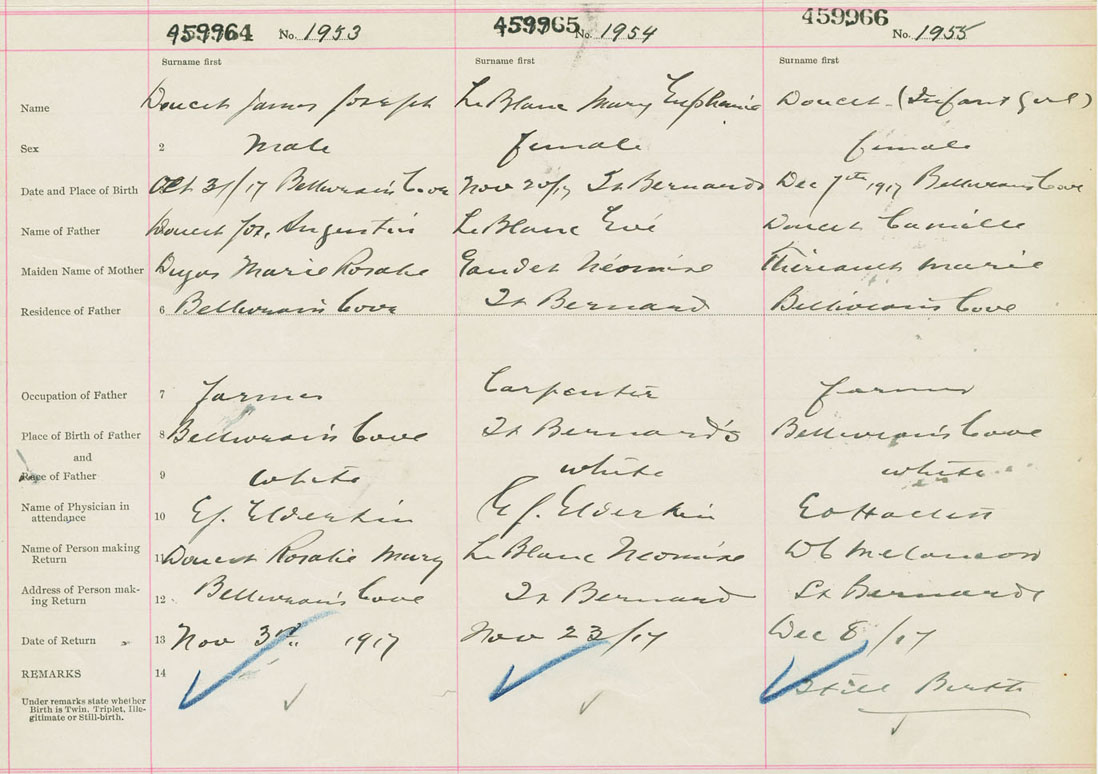 459964 No. 1953 459965 No. 1954 459966 No. 1955
Surname first Surname first Surname first
Name Doucet James Joseph Le Blanc Mary Euphanie Doucet (Infant Girl)
Sex 2 Male female female
Date and Place of Birth Oct 31/17 Belliveau's Cove Nov 20/17 St Bernards Dec 7th 1917 Belliveau's Cove
Name of Father Doucet Jos. Augustin Le Blanc Evé Doucet Camille
Maiden Name of Mother Dugas Marie Rosalie Gaudet Néomise Thériault Marie
Residence of Father 6 Belliveau's Cove St Bernard Belliveau's Cove
Occupation of Father 7 farmer Carpenter farmer
Place of Birth of Father 8 Belliveau's Cove St Bernard's Belliveau's Cove
and
Race of Father 9 white white white
Name of Physician in
attendance 10 E.J. Elderkin E J. Elderkin E O Hallett
Name of Person making
Return 11 Doucet Rosalie Mary Le Blanc Neomise W C Melanson
Address of Person mak-
ing Return 12 Belliveau's Cove St Bernard St Bernards
Date of Return 13 Nov 3rd 1917 Nov 23/17 Dec 8/17
REMARKS 14 Still Birth
Under remarks state whether
Birth is Twin, Triplet, Ille-
gitimate or Still-birth.